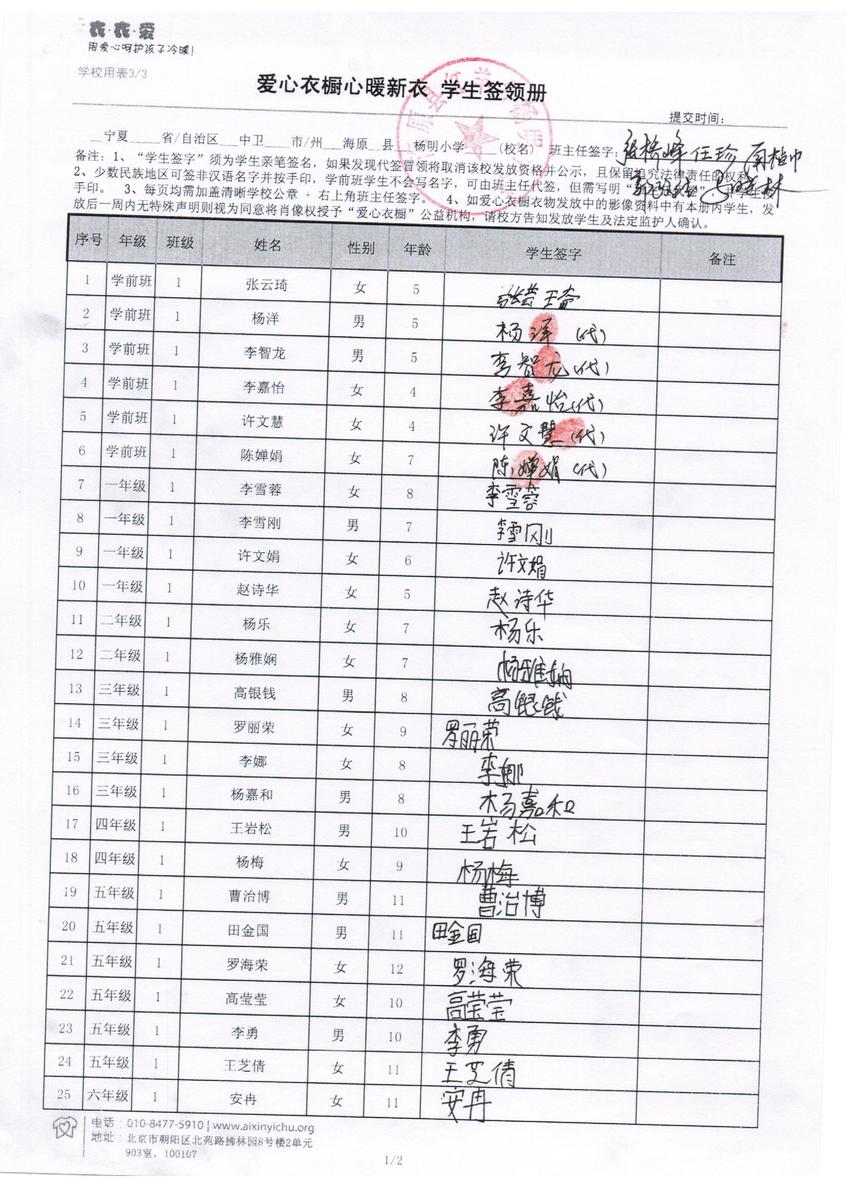 衣·衣·爱
用爱心呵护孩子冷暖!
学校用表3/3
爱心衣橱心暖新衣 学生签领册
提交时间:
宁夏 省/自治区 中卫 市/州 海原 县 杨明小学 (校名) 班主任签字: 任珍
备注: 1、“学生签字”须为学生亲笔签名,如果发现代签冒领将取消该校发放资格并公示,且保留追究法律责任的权利。
2、少数民族地区可签非汉语名字并按手印,学前班学生不会写名字,可由班主任代签,但需写明
手印。 3、每页均需加盖清晰学校公章 + 右上角班主任签字。 4、如爱心衣橱衣物发放中的影像资料中有本册内学生,发
放后一周内无特殊声明则视为同意将肖像权授予“爱心衣橱”公益机构,请校方告知发放学生及法定监护人确认。
序号 年级 班级 姓名 性别 年龄 学生签字 备注
1 学前班 1 张云琦 女 5
2 学前班 1 杨洋 男 5 杨洋(代)
3 学前班 1 李智龙 男 5 李智龙(代)
4 学前班 1 李嘉怡 女 4 李嘉怡(代)
5 学前班 1 许文慧 女 4 许文慧(代)
6 学前班 1 陈婵娟 女 7 陈婵娟(代)
7 一年级 1 李雪蓉 女 8 李雪蓉
8 一年级 1 李雪刚 男 7 李雪刚
9 一年级 1 许文娟 女 6 许文娟
10 一年级 1 赵诗华 女 5 赵诗华
11 二年级 1 杨乐 女 7 杨乐
12 二年级 1 杨雅娴 女 7 杨雅娴
13 三年级 1 高银钱 男 8 高银钱
14 三年级 1 罗丽荣 女 9 罗丽荣
15 三年级 1 李娜 女 8 李娜
16 三年级 1 杨嘉和 男 8 杨嘉和
17 四年级 1 王岩松 男 10 王岩松
18 四年级 1 杨梅 女 9 杨梅
19 五年级 1 曹治博 男 11 曹治博
20 五年级 1 田金国 男 11 田金国
21 五年级 1 罗海荣 女 12 罗海荣
22 五年级 1 高莹莹 女 10 高莹莹
23 五年级 1 李勇 男 10 李勇
24 五年级 1 王芝倩 女 11 王芝倩
25 六年级 1 安冉 女 11 安冉
电话: 010-8477-5910 | www.aixinyichu.org
地址: 北京市朝阳区北苑路拂林园8号楼2单元
903室, 100107
1/2